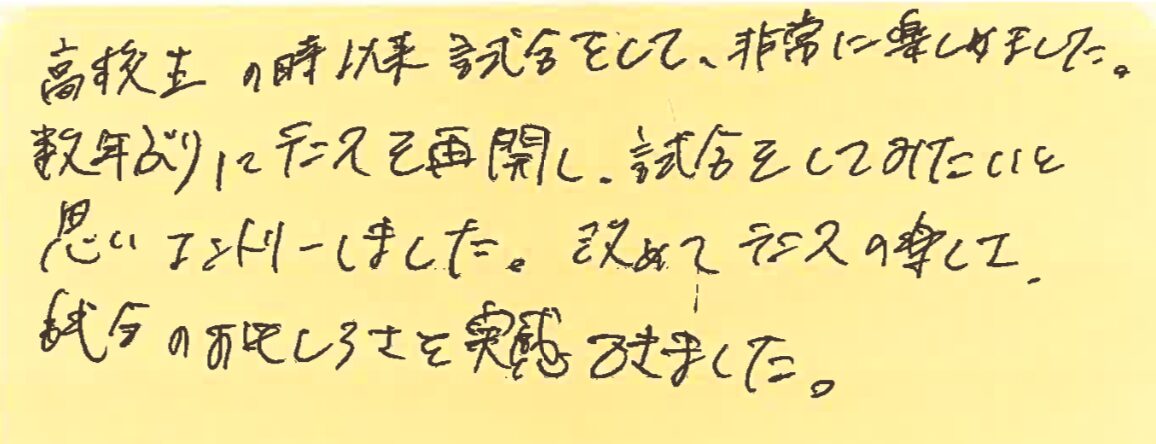 高校生の時以来試合をして、非常に楽しめました。
数年ぶりにテニスを再開し、試合をしてみたいと
思いエントリーしました。改めてテニスの楽しさ、
試合のおもしろさを実感できました。